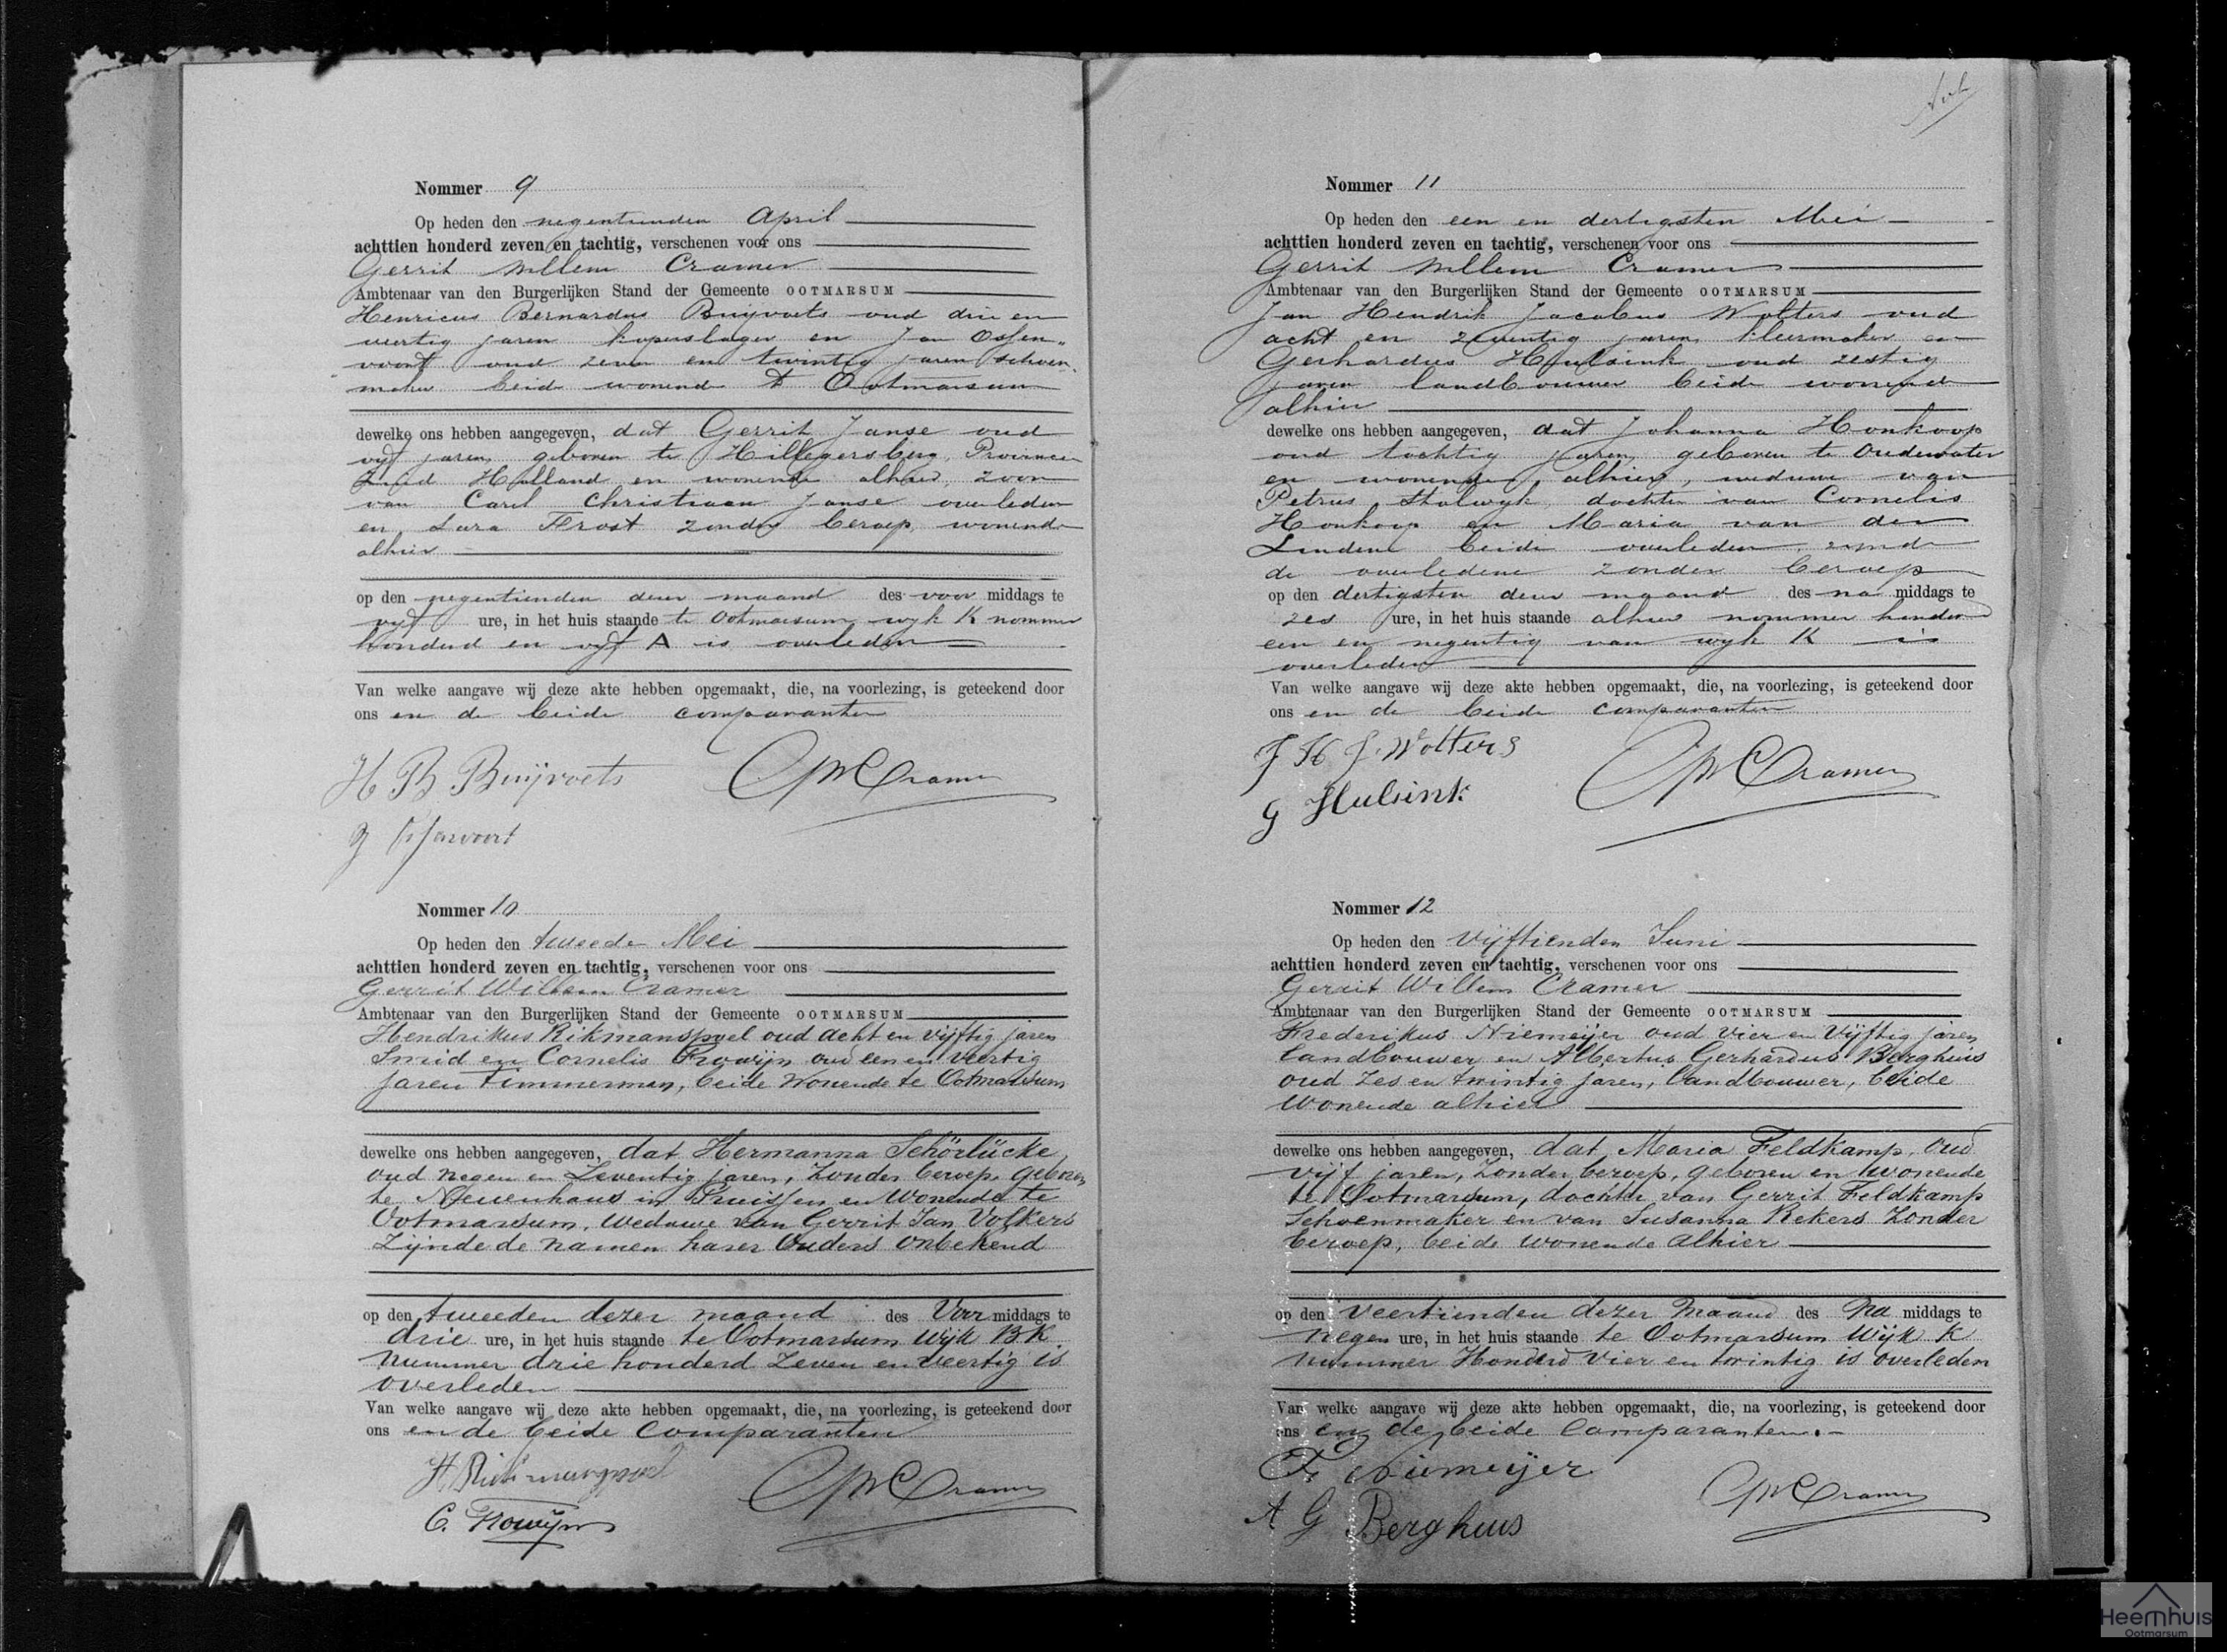 Nommer 9
Op heden den negentienden April
achttien honderd zeven en tachtig, verschenen voor ons
Gerrit Willem Cramer
Ambtenaar van den Burgerlijken Stand der Gemeente OOTMARSUM
Henricus Bernardus Buijvoets oud drie en
veertig jaren koperslager en Jan Ossen„
voort oud zeven en twintig jaren schoen„
maker beide wonende te Ootmarsum
dewelke ons hebben aangegeven, dat Gerrit Janse oud
vijf jaren geboren te Hillegersberg, Provincie
Zuid Holland en wonende alhier, zoon
van Carel Christiaan Janse overleden
en Sara Frost zonder beroep, wonende
alhier
op den negentienden dezer maand des voor middags te
vijf ure, in het huis staande te Ootmarsum wyk K nommer
honderd en vijf A is overleden
Van welke aangave wij deze akte hebben opgemaakt, die, na voorlezing, is geteekend door
ons en de beide comparanten
H B Buijvoets GWCramer
J Ossenvoort
Nommer 10
Op heden den tweede Mei
achttien honderd zeven en tachtig, verschenen voor ons
Gerrit Willem Cramer
Ambtenaar van den Burgerlijken Stand der Gemeente OOTMARSUM
Hendrikus Rikmanspoel oud acht en vijftig jaren
Smid en Cornelis Frowijn oud een en veertig
jaren Timmerman, beide wonende te Ootmarsum
dewelke ons hebben aangegeven, dat Hermanna Schörlücke
oud negen en Zeventig jaren, Zonder beroep, geboren
te Neuenhaus in Pruissen en Wonende te
Ootmarsum, Weduwe van Gerrit Jan Volkers
Zijnde de namen harer Ouders Onbekend
op den tweeden dezer maand des Voor middags te
drie ure, in het huis staande te Ootmarsum Wijk BK
Nummer drie honderd Zeven en veertig is
overleden
Van welke aangave wij deze akte hebben opgemaakt, die, na voorlezing, is geteekend door
ons en de beide Comparanten
H. Rikmanspoel GWCramer
C. Frowijn
Nommer 11
Op heden den een en dertigsten Mei
achttien honderd zeven en tachtig, verschenen voor ons
Gerrit Willem Cramer
Ambtenaar van den Burgerlijken Stand der Gemeente OOTMARSUM
Jan Hendrik Jacobus Wolters oud
acht en zeventig jaren kleermaker en
Gerhardus Hulsink oud zestig
jaren landbouwer beide wonende
alhier
dewelke ons hebben aangegeven, dat Johanna Honkoop
oud tachtig jaren, geboren te Oudewater
en wonende alhier, weduwe van
Petrus Stolwyk, dochter van Cornelis
Honkoop en Maria van der
Linden beide overleden zijnde
de overledene zonder beroep
op den dertigsten dezer maand des na middags te
zes ure, in het huis staande alhier nommer honderd
een en negentig van wyk K is
overleden
Van welke aangave wij deze akte hebben opgemaakt, die, na voorlezing, is geteekend door
ons en de beide comparanten
J H J. Wolters GWCramer
G Hulsink
Nommer 12
Op heden den Vijftienden Juni
achttien honderd zeven en tachtig, verschenen voor ons
Gerrit Willem Cramer
Ambtenaar van den Burgerlijken Stand der Gemeente OOTMARSUM
Frederikus Niemeijer oud vier en Vijftig jaren
landbouwer en Albertus Gerhardus Berghuis
oud Zes en twintig jaren, landbouwer, beide
Wonende alhier
dewelke ons hebben aangegeven, dat Maria Feldkamp, oud
vijf jaren, Zonder beroep, geboren en Wonende
te Ootmarsum, dochter van Gerrit Feldkamp
Schoenmaker en van Susanna Rekers Zonder
beroep, beide wonende alhier
op den Veertienden dezer Maand des Na middags te
negen ure, in het huis staande te Ootmarsum Wijk K
nummer Honderd Vier en twintig is overleden
Van welke aangave wij deze akte hebben opgemaakt, die, na voorlezing, is geteekend door
ons en de beide Comparanten.
F Niemeijer GWCramer
A G Berghuis
Heemhuis
Ootmarsum